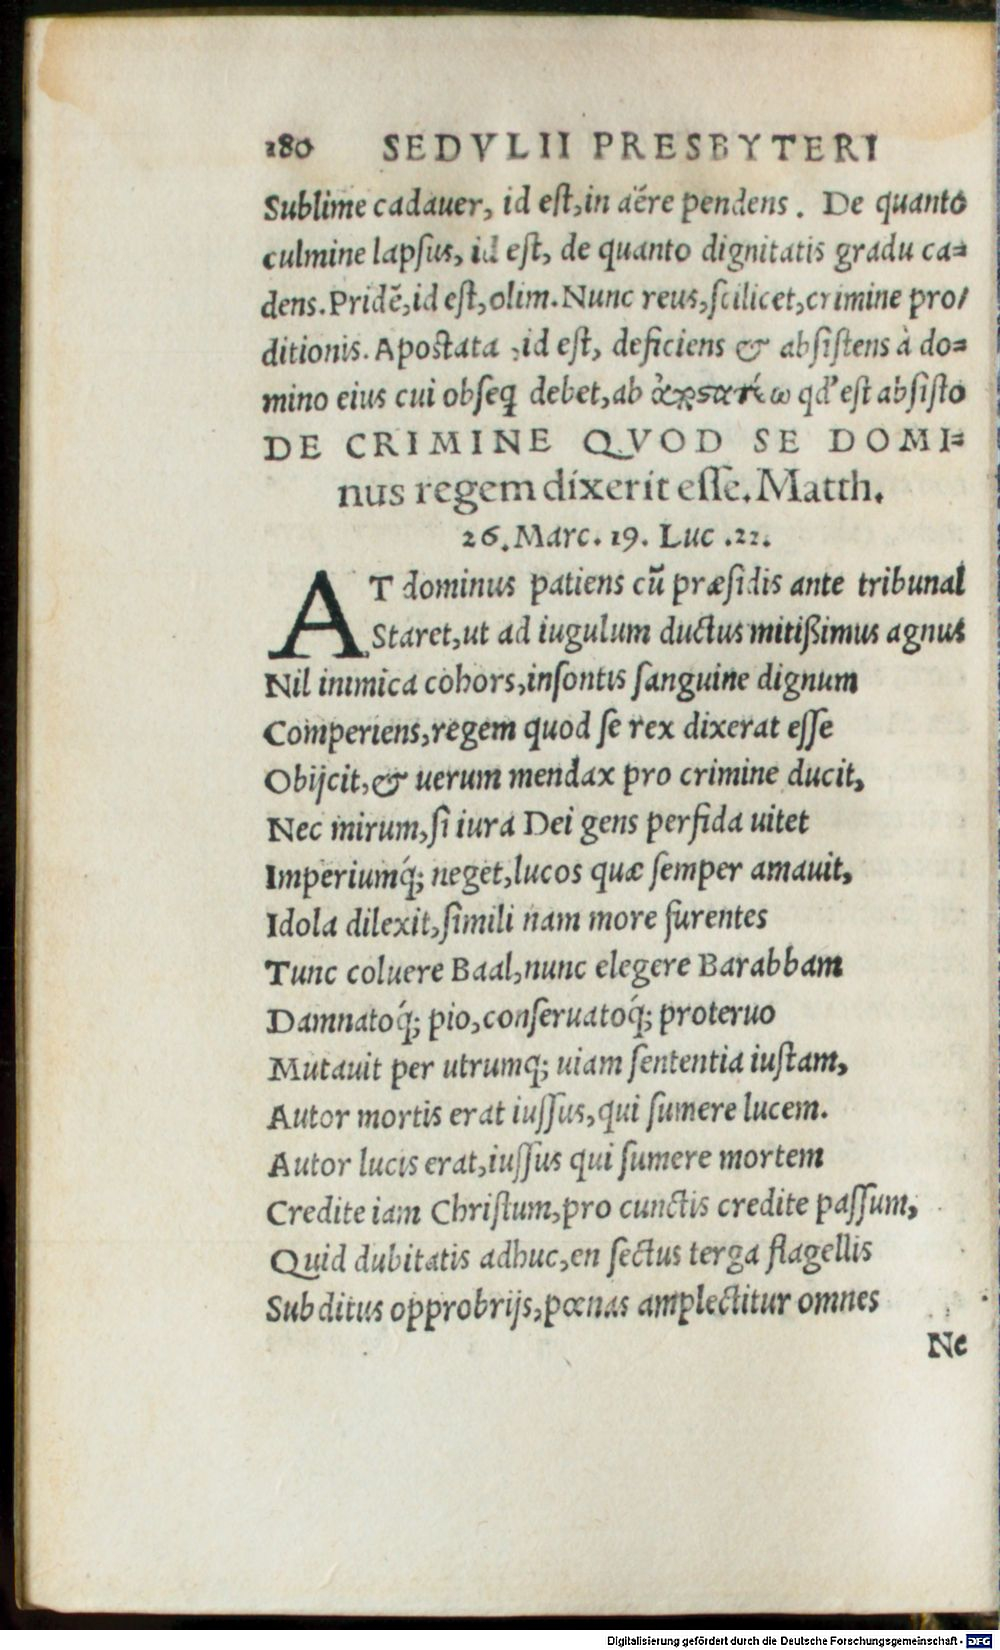 180 SEDVLII PRESBYTERI
Sublime cadauer, id est, in aëre pendens. De quanto
culmine lapsus, id est, de quanto dignitatis gradu ca=
dens. Pridē, id est, olim. Nunc reus, scilicet, crimine pro/
ditionis. Apostata, id est, deficiens & absistens à do=
mino eius cui obseq debet, ab qd' est absisto
DE CRIMINE QVOD SE DOMI=
nus regem dixerit esse. Matth.
26. Marc. 19. Luc .22.
AT dominus patiens cū præsidis ante tribunal
Staret, ut ad iugulum ductus mitißimus agnus
Nil inimica cohors, insontis sanguine dignum
Comperiens, regem quod se rex dixerat esse
Obijcit, & uerum mendax pro crimine ducit,
Nec mirum, si iura Dei gens perfida uitet
Imperiumq́; neget, lucos quæ semper amauit,
Idola dilexit, simili nam more furentes
Tunc coluere Baal, nunc elegere Barabbam
Damnatoq́; pio, conseruatoq́; proteruo
Mutauit per utrumq; uiam sententia iustam,
Autor mortis erat iussus, qui sumere lucem.
Autor lucis erat, iussus qui sumere mortem
Credite iam Christum, pro cunctis credite passum,
Quid dubitatis adhuc, en sectus terga flagellis
Subditus opprobrijs, pœnas amplectitur omnes
Ne
Digitalisierung gefördert durch die Deutsche Forschungsgemeinschaft - DFG